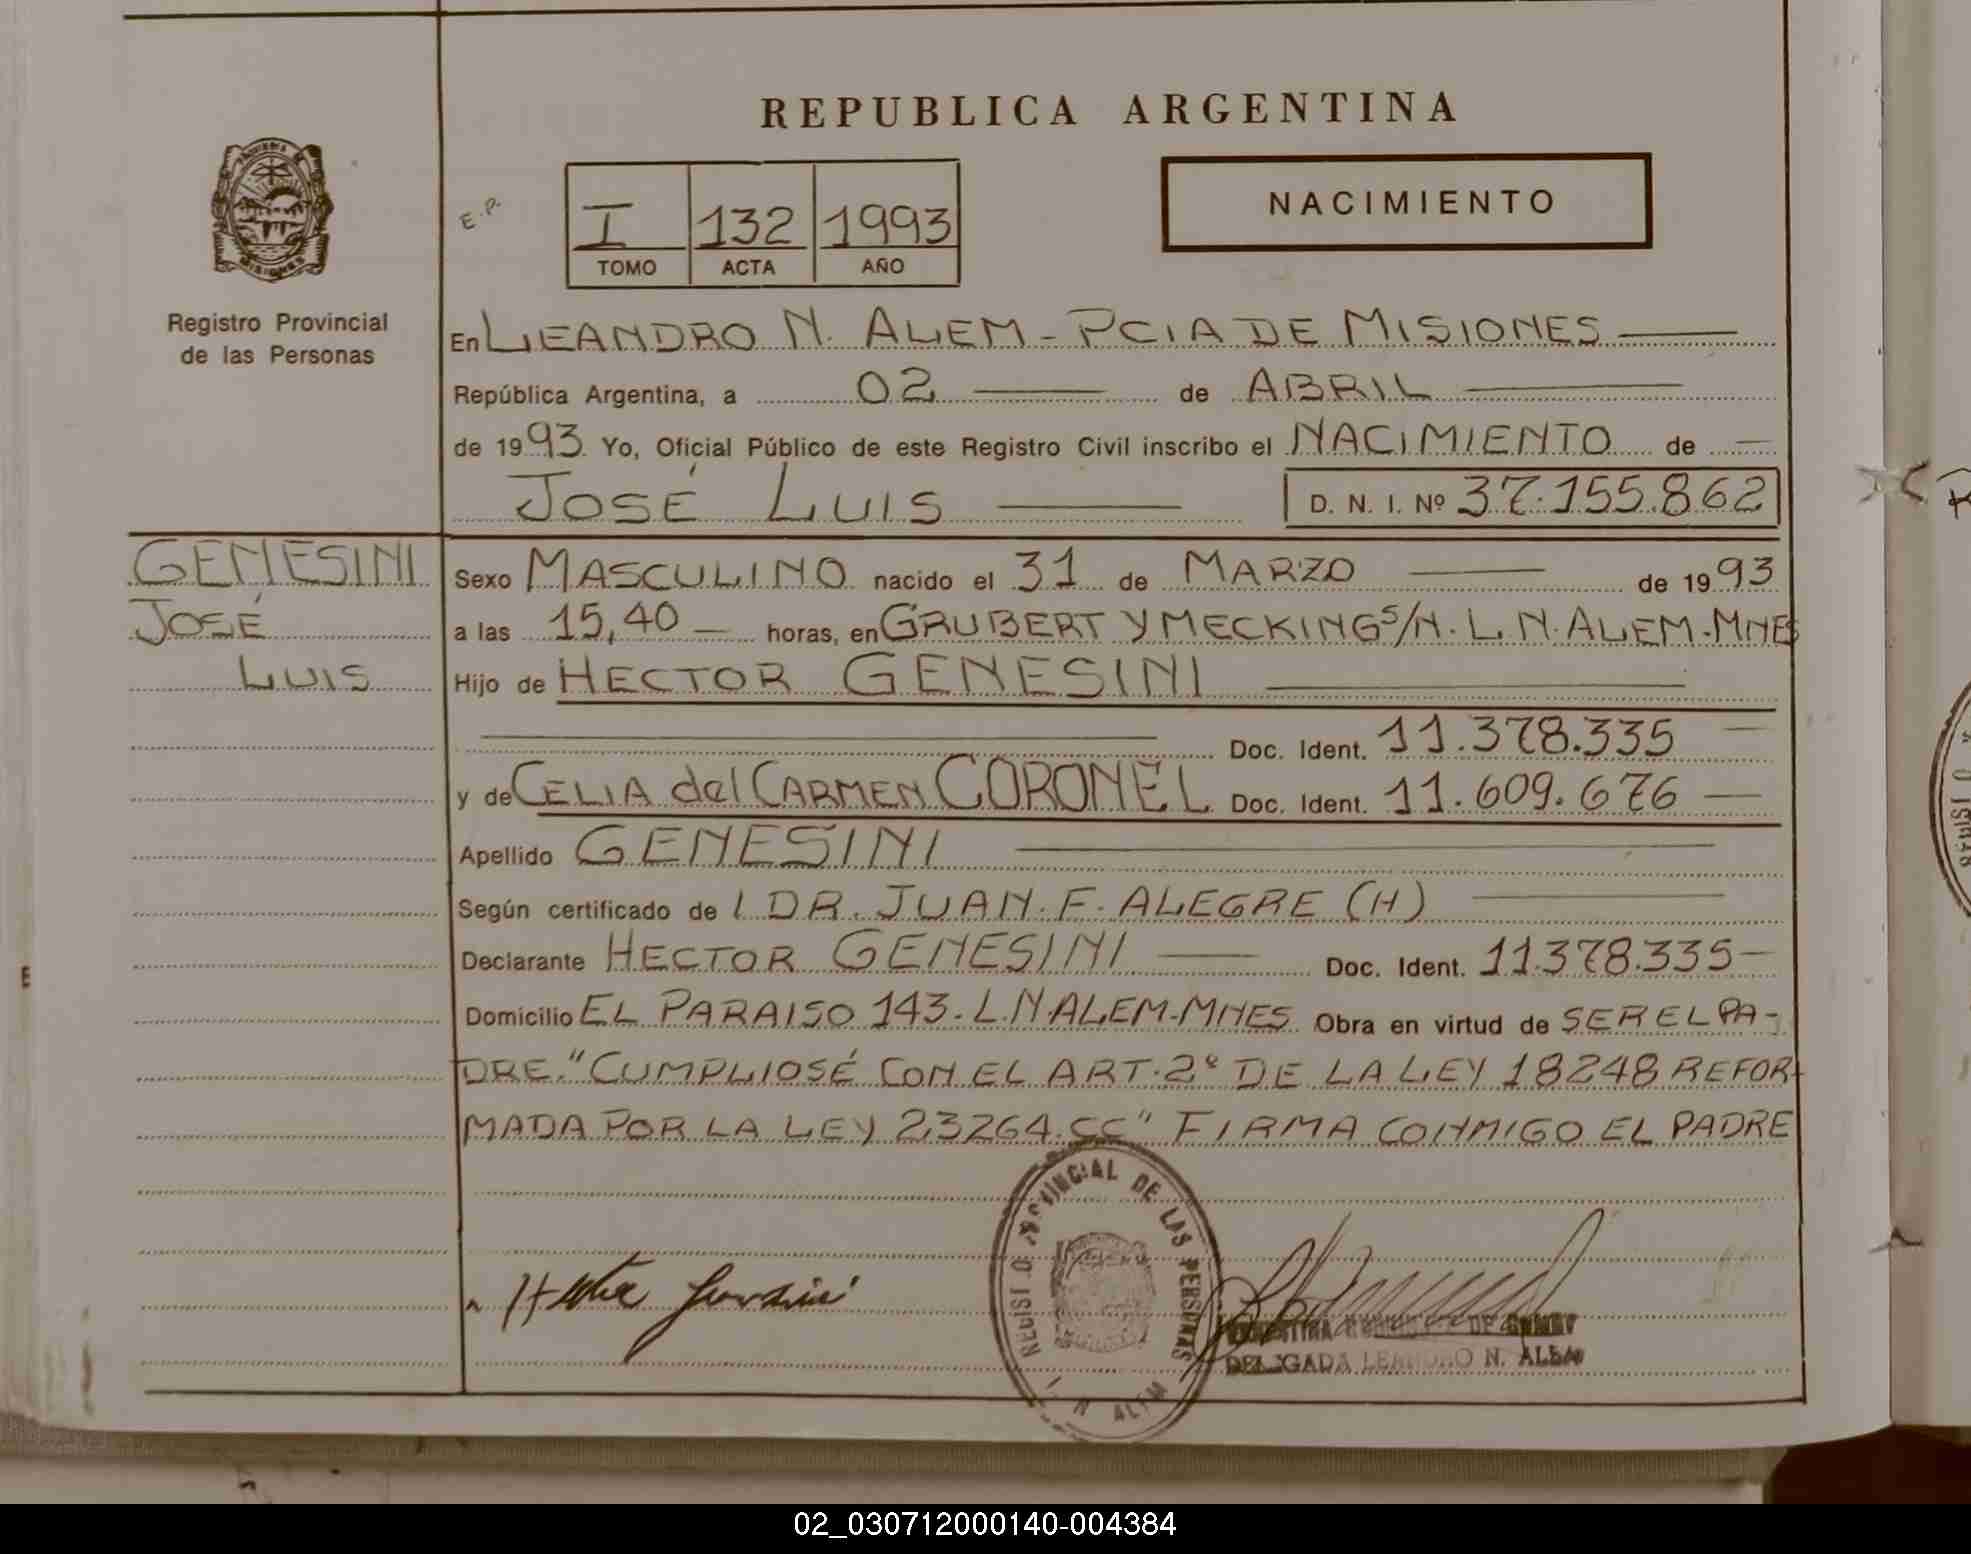 REPUBLICA ARGENTINA
NACIMIENTO
E.P.
I 132 1993
TOMO ACTA AÑO
Registro Provincial
de las Personas
En LEANDRO N. ALEM - PCIA DE MISIONES
República Argentina, a 02 de ABRIL
de 1993 Yo, Oficial Público de este Registro Civil inscribo el NACIMIENTO de
JOSÉ LUIS D. N. I. Nº 37.155.862
GENESINI
JOSÉ
LUIS
Sexo MASCULINO nacido el 31 de MARZO de 1993
a las 15,40 horas, en GRUBERT Y MECKING S/N. L. N. ALEM. MNES
Hijo de HECTOR GENESINI
Doc. Ident. 11.378.335
y de CELIA del CARMEN CORONEL Doc. Ident. 11.609.676
Apellido GENESINI
Según certificado de l DR. JUAN. F. ALEGRE (H)
Declarante HECTOR GENESINI Doc. Ident. 11.378.335
Domicilio EL PARAISO 143. L. N ALEM. MNES Obra en virtud de SER EL PA-
DRE. "CUMPLIOSÉ CON EL ART. 2º DE LA LEY 18248 REFOR-
MADA POR LA LEY 23264 CC" FIRMA CONMIGO EL PADRE
REGISTRO PROVINCIAL DE LAS PERSONAS
L N ALEM
DELEGADA LEANDRO N. ALEM
02_030712000140-004384